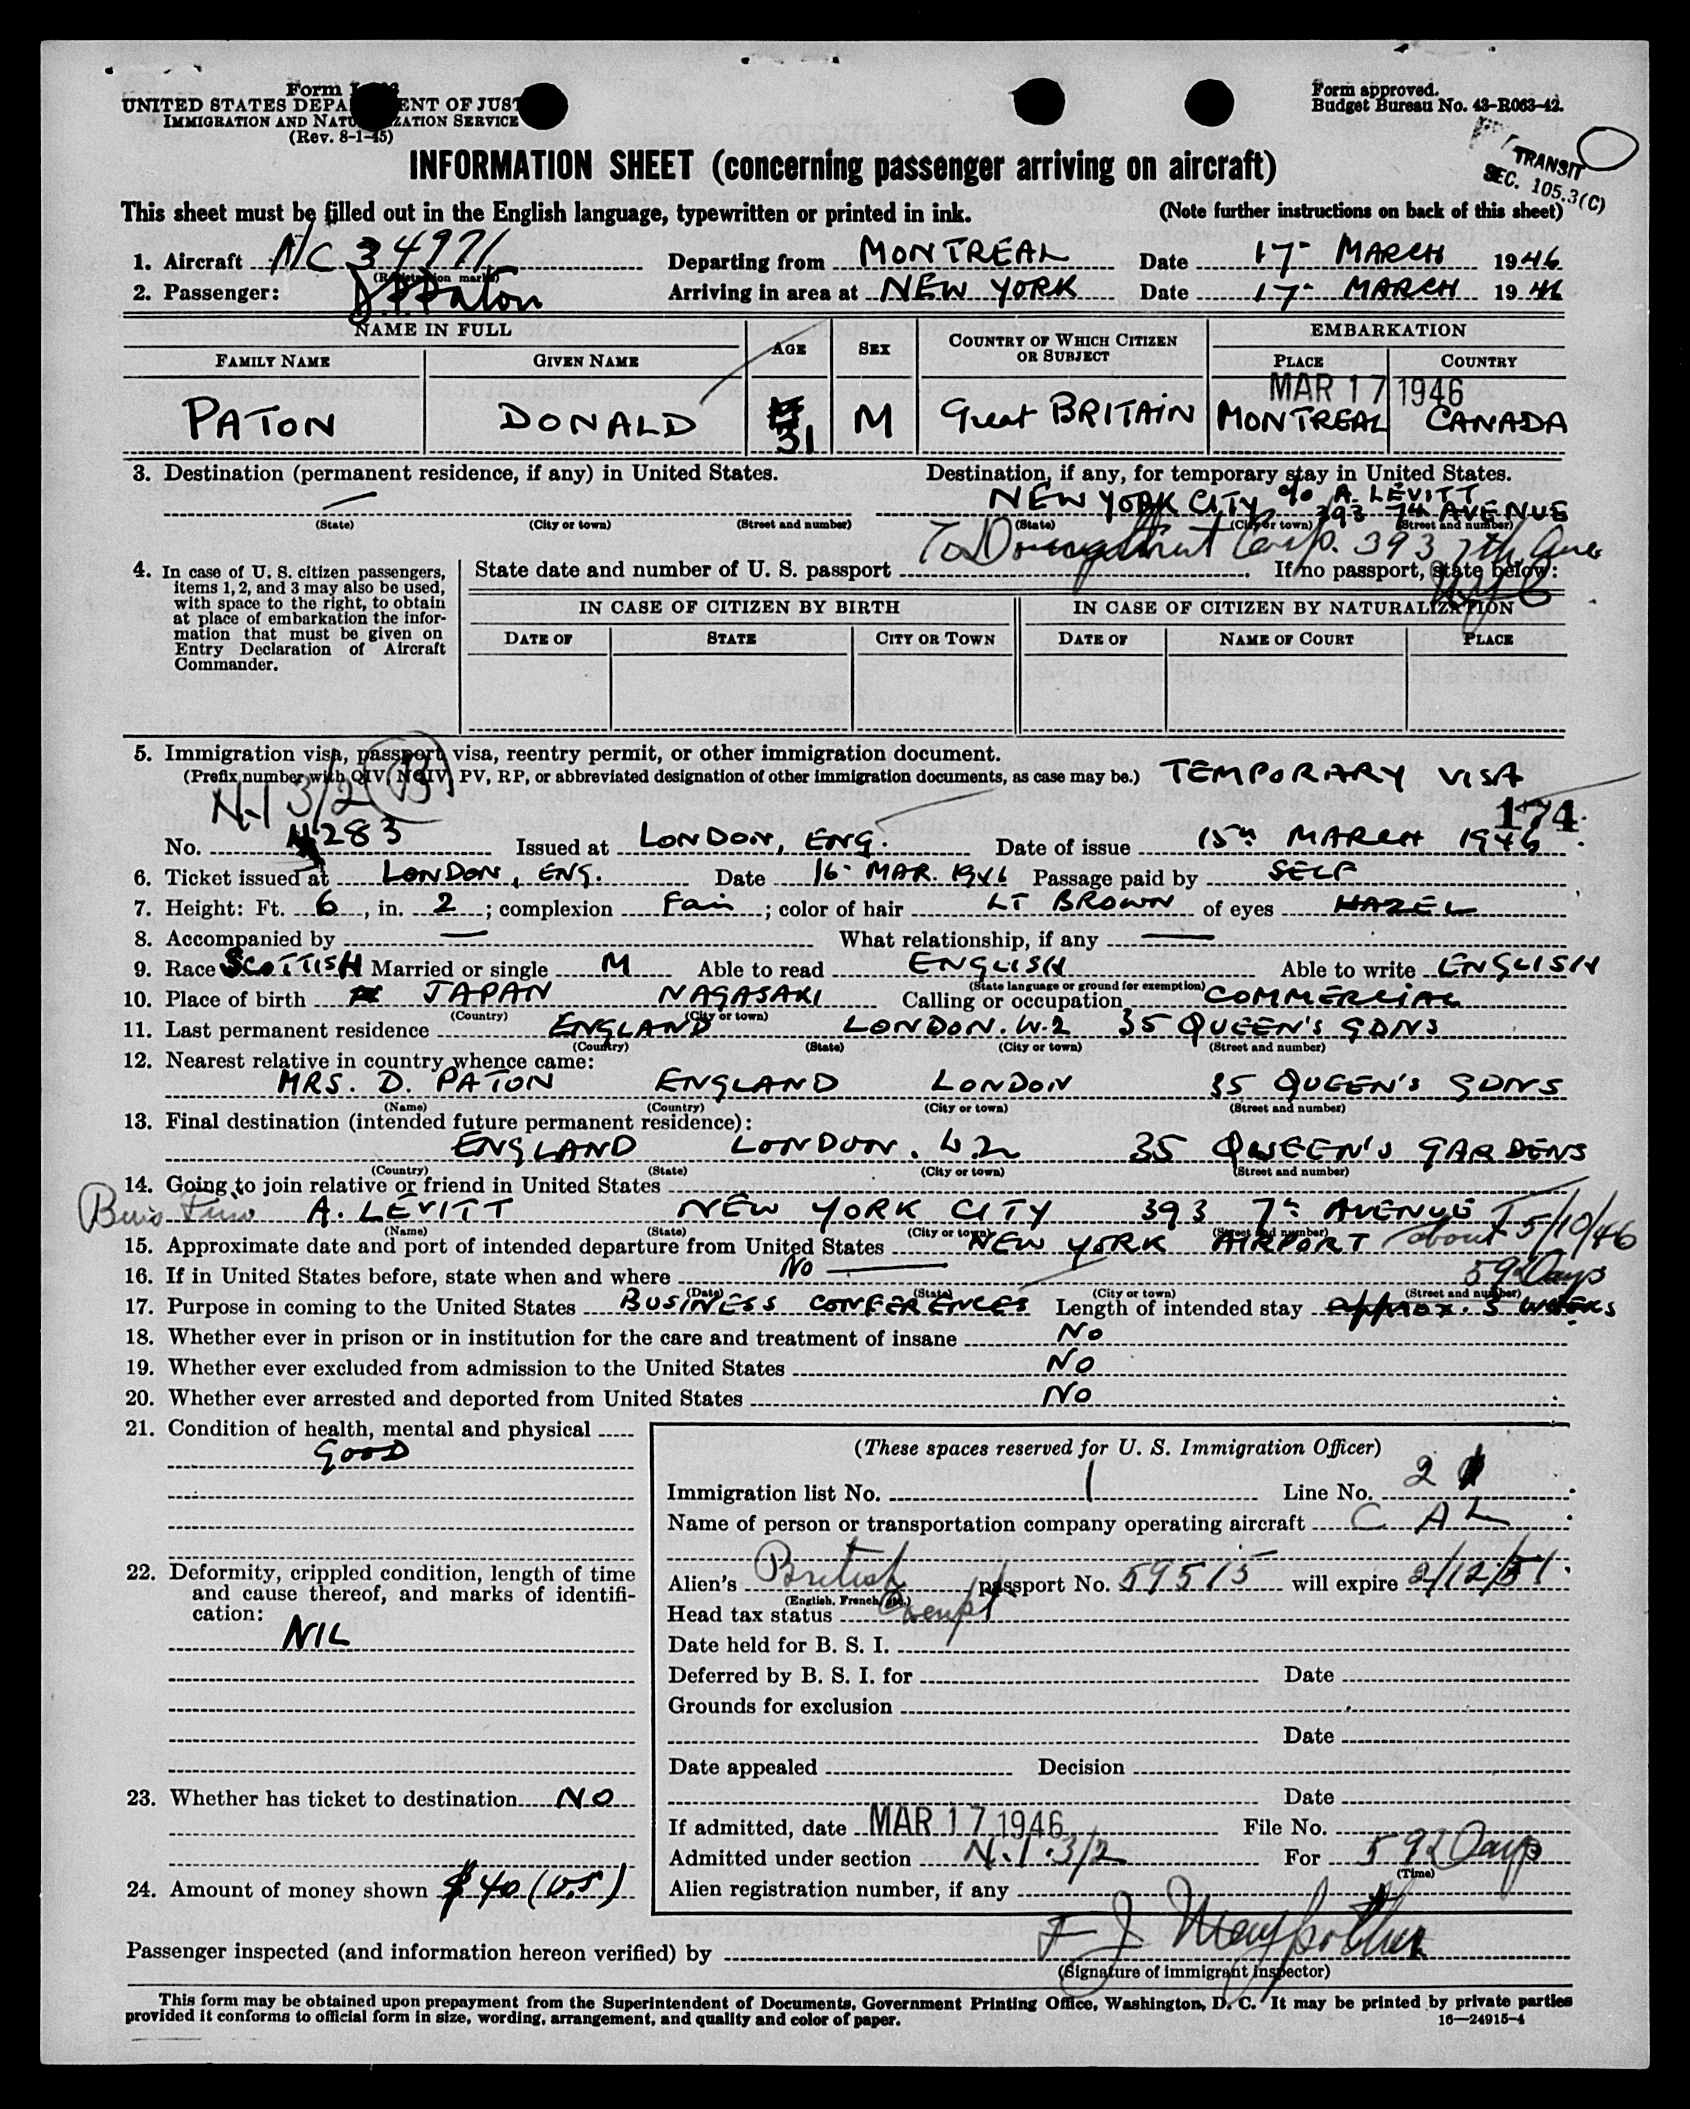 Form
UNITED STATES DEPARTMENT OF JUSTICE
IMMIGRATION AND NATURALIZATION SERVICE
(Rev. 8-1-45)
Form approved.
Budget Bureau No. 43-R063-42.
TRANSIT
SEC. 105.3(C)
INFORMATION SHEET (concerning passenger arriving on aircraft)
This sheet must be filled out in the English language, typewritten or printed in ink. (Note further instructions on back of this sheet)
1. Aircraft N/C 34971 Departing from MONTREAL Date 17- MARCH 1946
(Registration marks)
2. Passenger: D.P. Paton Arriving in area at NEW YORK Date 17- MARCH 1946
NAME IN FULL AGE SEX COUNTRY OF WHICH CITIZEN OR SUBJECT EMBARKATION
FAMILY NAME GIVEN NAME PLACE COUNTRY
MAR 17 1946
PATON DONALD 31 M Great BRITAIN MONTREAL CANADA
3. Destination (permanent residence, if any) in United States. Destination, if any, for temporary stay in United States.
— NEW YORK CITY c/o A. LEVITT
393 7th AVENUE
(State) (City or town) (Street and number) (State) (City or town) (Street and number)
To Corp. 393 7th Ave
NYC
4. In case of U. S. citizen passengers, items 1, 2, and 3 may also be used, with space to the right, to obtain at place of embarkation the information that must be given on Entry Declaration of Aircraft Commander.
State date and number of U. S. passport If no passport, state below:
IN CASE OF CITIZEN BY BIRTH IN CASE OF CITIZEN BY NATURALIZATION
DATE OF STATE CITY OR TOWN DATE OF NAME OF COURT PLACE
5. Immigration visa, passport visa, reentry permit, or other immigration document.
(Prefix number with QIV, NQIV, PV, RP, or abbreviated designation of other immigration documents, as case may be.) TEMPORARY VISA
N.I 3/2 (B) 174
No. 283 Issued at LONDON, ENG. Date of issue 15th MARCH 1946
6. Ticket issued at LONDON, ENG. Date 16- MAR. 1946 Passage paid by SELF
7. Height: Ft. 6, in. 2; complexion Fair; color of hair LT BROWN of eyes HAZEL
8. Accompanied by — What relationship, if any —
9. Race SCOTTISH Married or single M Able to read ENGLISH Able to write ENGLISH
(State language or ground for exemption)
10. Place of birth JAPAN NAGASAKI Calling or occupation COMMERCIAL
(Country) (City or town)
11. Last permanent residence ENGLAND LONDON. W.2 35 QUEEN'S GDNS
(Country) (State) (City or town) (Street and number)
12. Nearest relative in country whence came:
MRS. D. PATON ENGLAND LONDON 35 QUEEN'S GDNS
(Name) (Country) (City or town) (Street and number)
13. Final destination (intended future permanent residence):
ENGLAND LONDON. W.2 35 QUEEN'S GARDENS
(Country) (State) (City or town) (Street and number)
14. Going to join relative or friend in United States
A. LEVITT NEW YORK CITY 393 7th AVENUE
(Name) (State) (City or town) (Street and number)
15. Approximate date and port of intended departure from United States NEW YORK AIRPORT about 5/10/46
16. If in United States before, state when and where No — 59 Days
(Date) (State) (City or town) (Street and number)
17. Purpose in coming to the United States BUSINESS CONFERENCES Length of intended stay approx. 3 WEEKS
18. Whether ever in prison or in institution for the care and treatment of insane No
19. Whether ever excluded from admission to the United States No
20. Whether ever arrested and deported from United States No
21. Condition of health, mental and physical
GOOD
22. Deformity, crippled condition, length of time and cause thereof, and marks of identification:
NIL
23. Whether has ticket to destination NO
24. Amount of money shown $40 (U.S)
(These spaces reserved for U. S. Immigration Officer)
Immigration list No. 1 Line No. 2
Name of person or transportation company operating aircraft C A L
Alien's British passport No. 59515 will expire 2/12/51
(English, French, etc.)
Head tax status Exempt
Date held for B. S. I.
Deferred by B. S. I. for Date
Grounds for exclusion
Date
Date appealed Decision
Date
If admitted, date MAR 17 1946 File No.
Admitted under section N.I.3/2 For 59 Days
(Time)
Alien registration number, if any
Passenger inspected (and information hereon verified) by
(Signature of immigrant inspector)
This form may be obtained upon prepayment from the Superintendent of Documents, Government Printing Office, Washington, D. C. It may be printed by private parties
provided it conforms to official form in size, wording, arrangement, and quality and color of paper.
16—24915-4